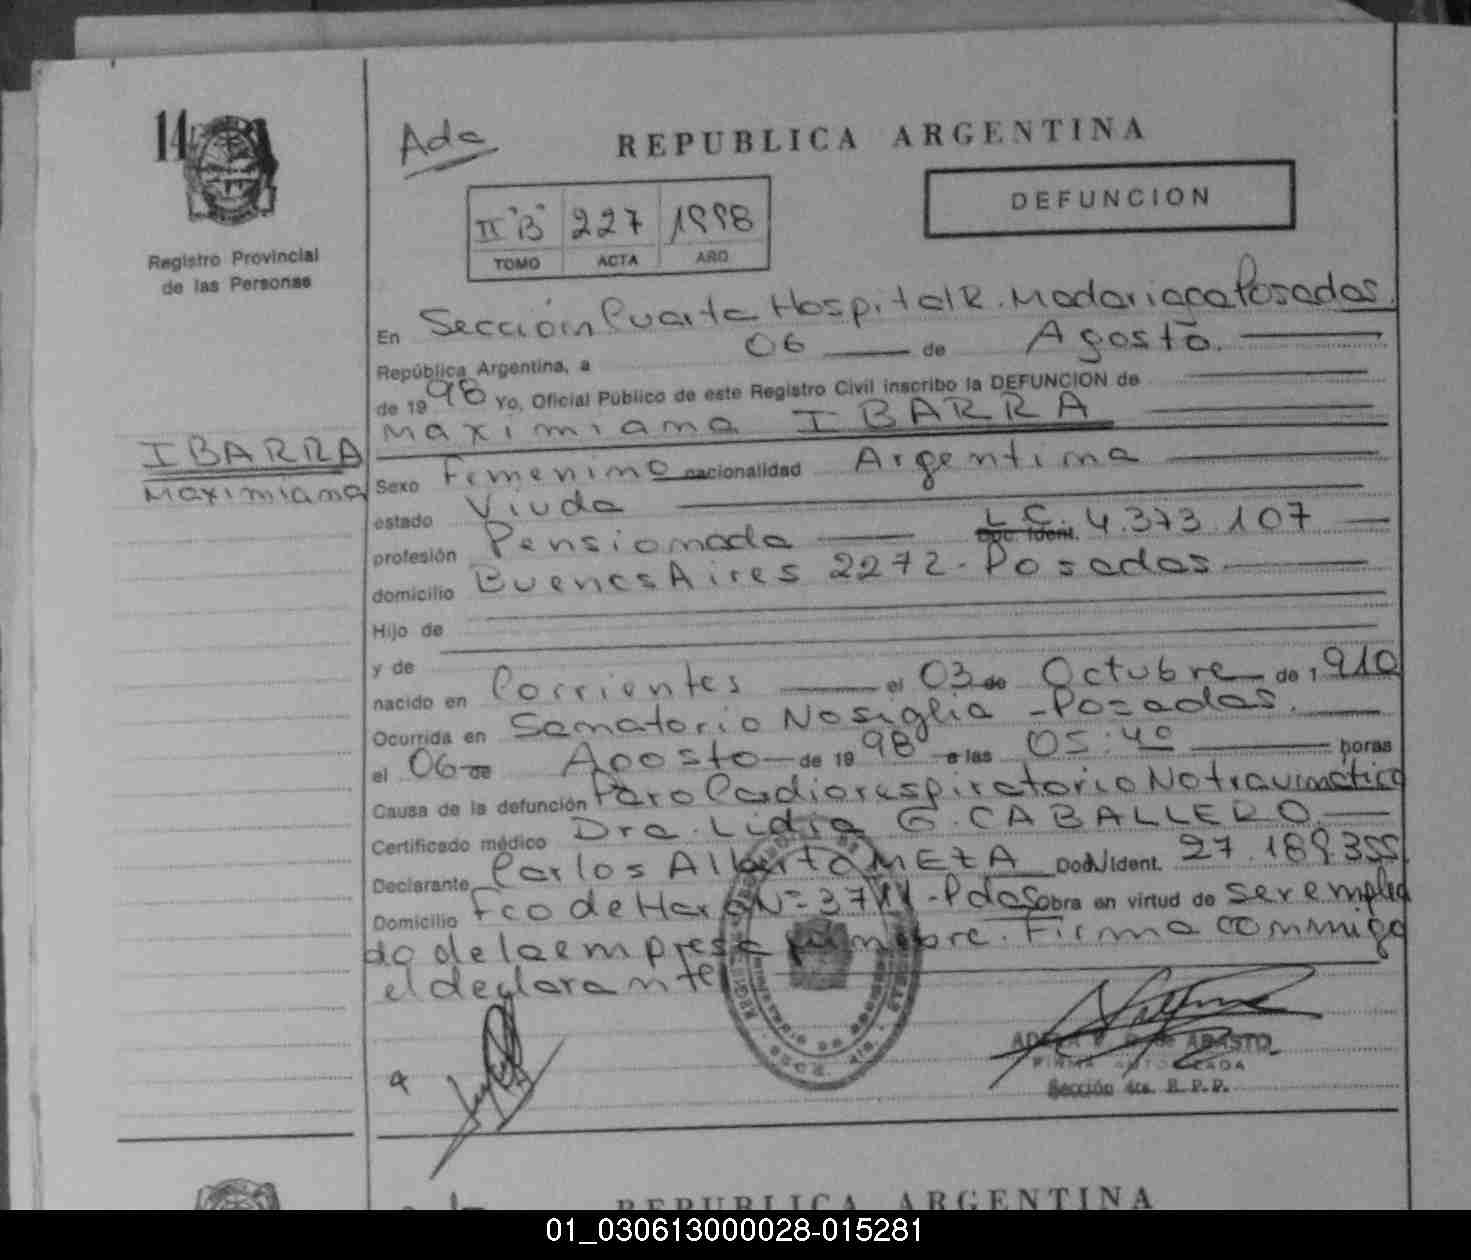 14
Registro Provincial
de las Personas
IBARRA
Maximiana
Ada
REPUBLICA ARGENTINA
DEFUNCION
II "B" 227 1998
TOMO ACTA AÑO
En Sección Cuarta Hospital R. Madariaga Posadas.
República Argentina, a 06 de Agosto.
de 1998 Yo, Oficial Público de este Registro Civil inscribo la DEFUNCION de
Maximiana IBARRA
Sexo Femenino nacionalidad Argentina
estado Viuda
profesión Pensionada L.C. Doc. Ident. 4.373.107
domicilio Buenos Aires 2272 - Posadas
Hijo de
y de
nacido en Corrientes el 03 de Octubre de 1.910
Ocurrida en Sanatorio Nosiglia - Posadas.
el 06 de Agosto de 1998 a las 05:40 horas
Causa de la defunción Paro Cardiorespiratorio No traumático
Certificado médico Dra. Lidia G. CABALLERO
Declarante Carlos Alberto MEZA Doc. Ident. 27.189.355
Domicilio Fco de Haro Nº 3711 - Pdas Obra en virtud de ser emplea
do de la empresa fúnebre. Firma conmigo
el declarante
4
ABASTO
FIRMA AUTORIZADA
Sección 4ta. R.P.P.
REPUBLICA ARGENTINA
01_030613000028-015281